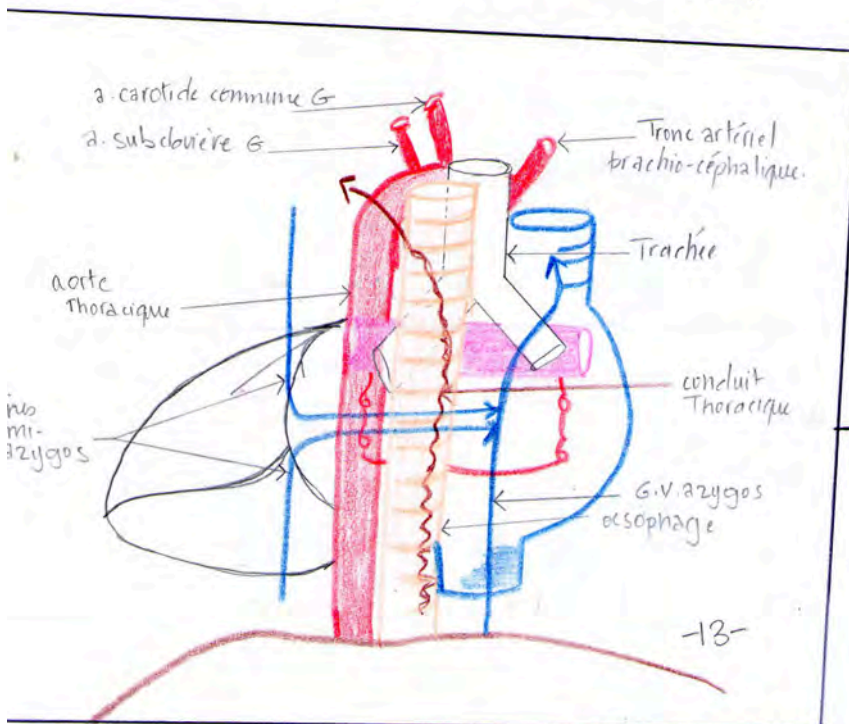 a. carotide commune G
a. subclavière G
Tronc artériel
brachio-céphalique.
Trachée
aorte
Thoracique
conduit
Thoracique
azygos
G.V. azygos
oesophage
-13-